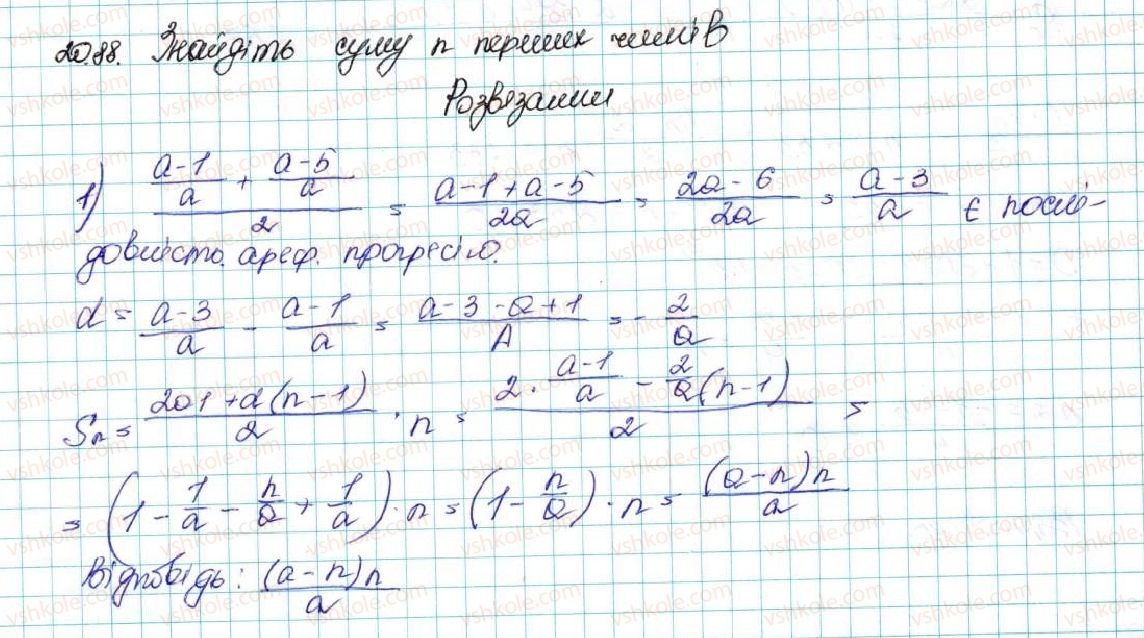 20.88. Знайдіть суму n перших членів
Розв'язання
1) ((a-1)/a + (a-5)/a)/2 = (a-1+a-5)/2a = (2a-6)/2a = (a-3)/a є послі-
довністю ареф. прогресією.
d = (a-3)/a - (a-1)/a = (a-3-a+1)/A = -2/a
Sn = (2a1+d(n-1))/2 · n = (2·(a-1)/a - 2/a(n-1))/2 =
= (1 - 1/a - n/a + 1/a)·n = (1 - n/a)·n = (a-n)n/a
Відповідь: (a-n)n/a